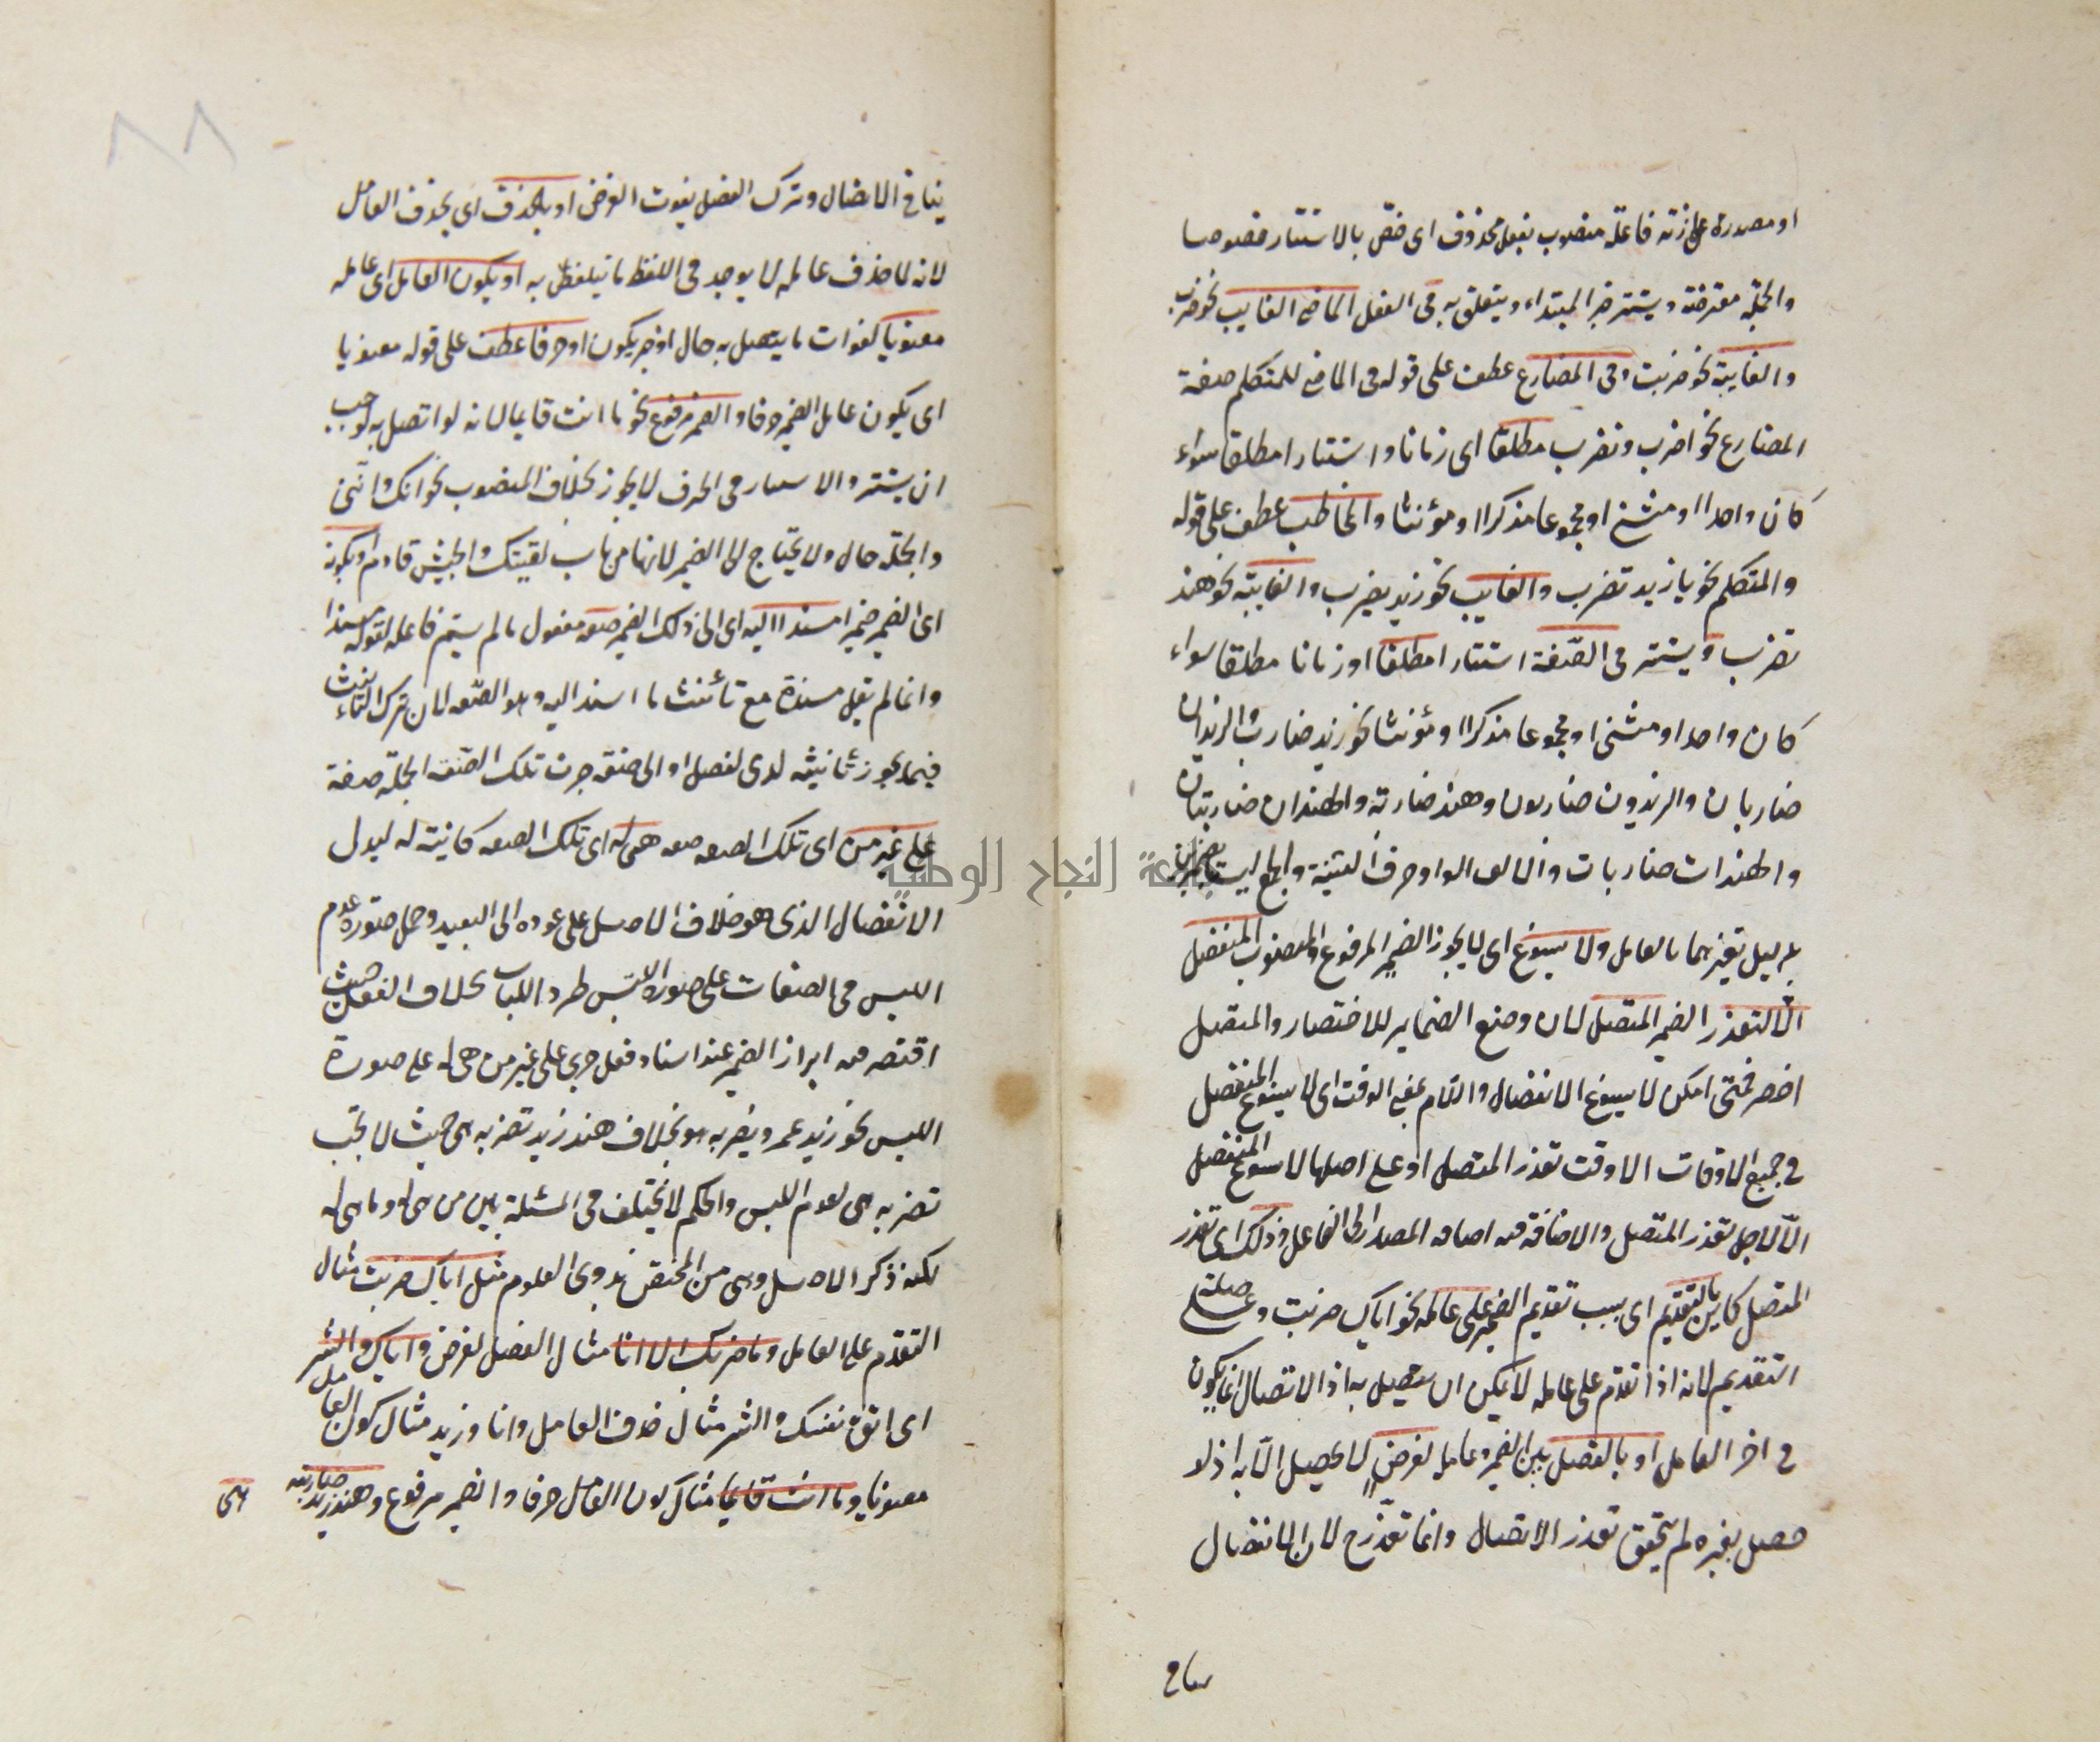 او مصدر على زنة فاعلة منصوب بفعل محذوف اى خص بالاستتار خصوصا
والجملة معترضة ويستتر خبر المبتداء ويتعلق به فى الفعل الماضى الغايب نحو ضرب
والغايبة نحو ضربت وفى المضارع عطف على قوله فى الماضى للمتكلم صفة
المضارع نحو اضرب ونضرب مطلقا اى زمانا واستتارا مطلقا سواء
كان واحدا او مثنى او مجموعا مذكرا او مؤنثا والمخاطب عطف على قوله
والمتكلم نحو يا زيد تضرب والغايب نحو زيد يضرب والغايبة نحو هند
تضرب ويستتر فى الصفة استتارا مطلقا او زمانا مطلقا سواء
كان واحدا او مثنى او مجموعا مذكرا او مؤنثا نحو زيد ضارب والزيدان
ضاربان والزيدون ضاربون وهند ضاربة والهندان ضاربتان
والهندات ضاربات والالف والواو حرفا التثنية والجمع ليستا بضميرين
بدليل تغيرهما بالعامل ولا يسوغ اى لا يجوز الضمير المرفوع والمنصوب المنفصل
الا لتعذر الضمير المتصل لان وضع الضماير للاختصار والمتصل
اخصر فمتى امكن لا يسوغ الانفصال واللام بمعنى الوقت اى لا يسوغ المنفصل
فى جميع الاوقات الا وقت تعذر المتصل او على اصلها لا يسوغ المنفصل
الا لاجل تعذر المتصل والاضافة من اضافة المصدر الى الفاعل وذلك اى تعذر
المتصل كاين بالتقديم اى بسبب تقديم الضمير على عامله نحو اياك ضربت وعلى صلة
التقديم لانه اذا تقدم على عامله لا يمكن ان يتصل به اذ الاتصال انما يكون
فى اخر العامل او بالفصل بين الضمير وعامله لغرض لا يحصل الا به اذ لو
حصل بغيره لم يتحقق تعذر الاتصال وانما تعذر ح لان الانفصال
ينافى
٨٨
ينافى الاتصال وترك الفصل يفوت الغرض او بالحذف اى بحذف العامل
لانه لما حذف عامله لا يوجد فى اللفظ ما يتلفظ به او بكون العامل اى عامله
معنويا لفوات ما يتصل به حال او خبر يكون او حرفا عطف على قوله معنويا
اى يكون عامل الضمير حرفا والضمير مرفوع نحو ما انت قايما لانه لو اتصل به لوجب
ان يستتر والاستتار فى الحرف لا يجوز بخلاف المنصوب نحو انك وانني
والجملة حال ولا يحتاج الى الضمير لانها من باب لقيتك والجيش قادم او بكونه
اى الضمير ضميرا مسندا اليه اى الى ذلك الضمير صفة مفعول ما لم يسم فاعله لقوله مسندا
وانما لم يقل مسندة مع تأنيث ما اسند اليه وهو الصفة لان ترك التاء
فيما يجوز تأنيثه لدى لفصل او الى صفة جرت تلك الصفة الجملة صفة
على غير من اى تلك الصفة صفة هى له اى تلك الصفة كاينة له ليدل
الانفصال الذى هو خلاف الاصل على عوده الى البعيد وحمل صورة عدم
اللبس فى الصفات على صورة اللبس طردا للباب بخلاف الفعل حيث
اقتصر من ابراز الضمير عند اسناد فعل جرى على غير من هى له على صورة
اللبس نحو زيد عمرو يضربه هو بخلاف هند زيد تضربه هى حيث لا يجب
تضربه هى لعدم اللبس والحكم لا يختلف فى المسئلة بين من هى له وما هى له
لكنه ذكر الاصل وهى من المختص بذوى العلوم مثل اياك ضربت مثال
التقدم على العامل وما ضربك الا انا مثال الفصل لغرض واياك والشر
اى اتق نفسك والشر مثال حذف العامل وانا وزيد مثال كون العامل
معنويا وما انت قايما مثال كون العامل حرفا والضمير مرفوع وهند زيد ضاربته
هى
جامعة النجاح الوطنية